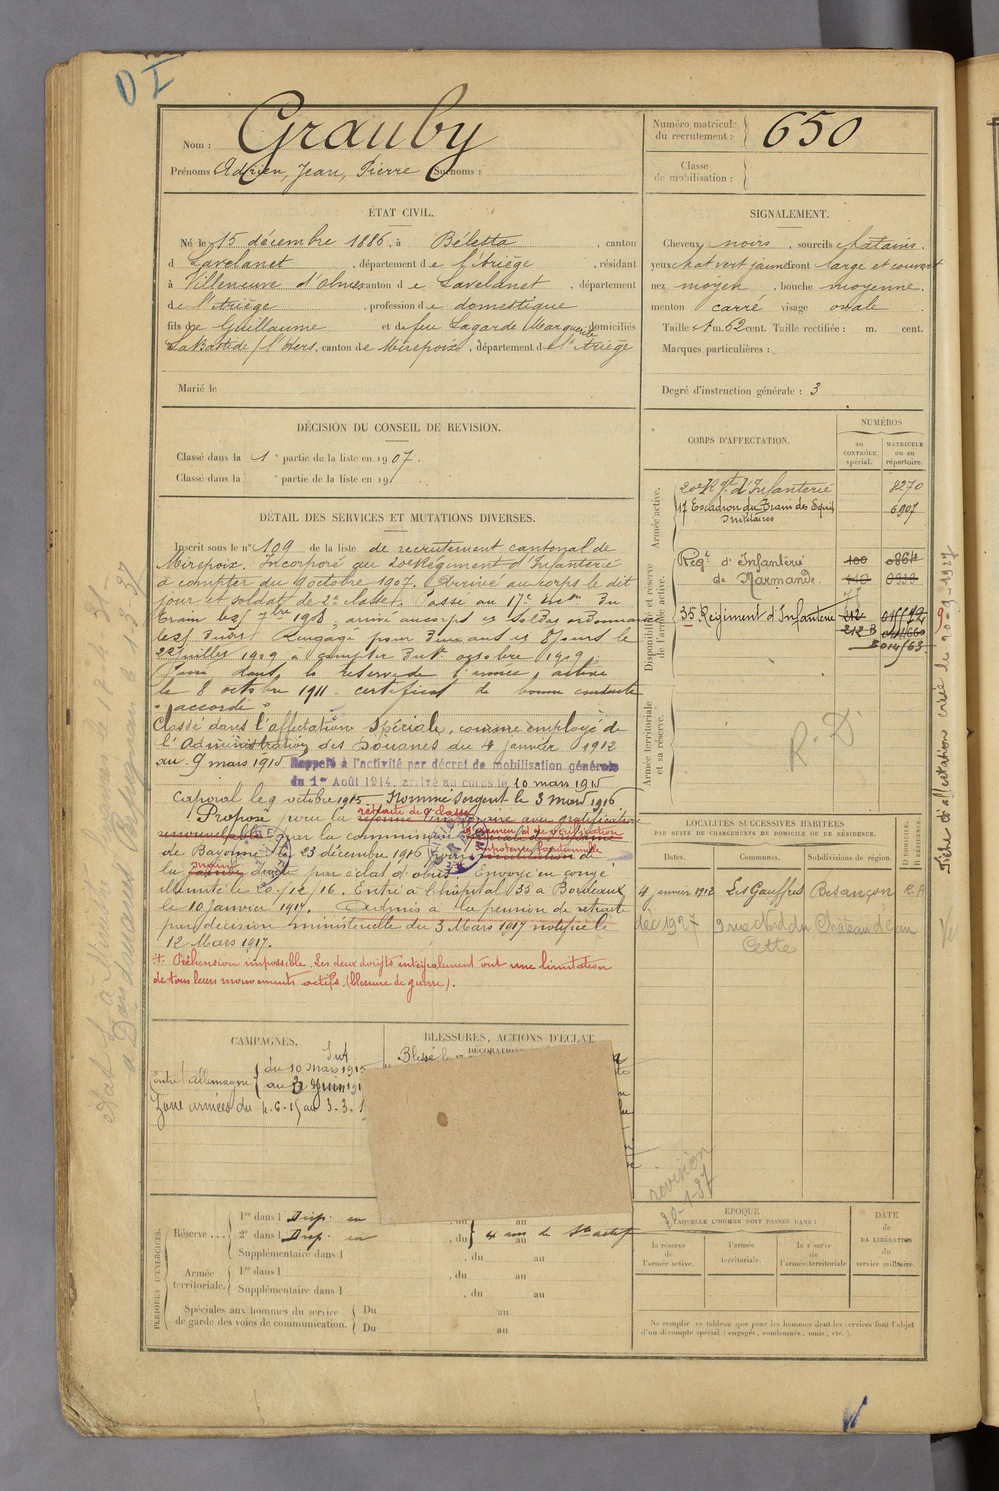 DI
Nom : Grauby
Prénoms Adrien, Jean, Pierre Surnoms :
Numéro matricule du recrutement : 650
Classe de mobilisation :
ÉTAT CIVIL.
Né le 15 décembre 1886, à Bélesta, canton
d Lavelanet, département de l'Ariège, résidant
à Villeneuve d'Olmes canton de Lavelanet, département
de l'Ariège, profession de domestique
fils de Guillaume et de feu Lagarde Marguerite domiciliés
La Bastide s/ l'Hers, canton de Mirepoix, département de l'Ariège
Marié le
SIGNALEMENT.
Cheveux noirs, sourcils chatains.
yeux chat vert jaune front large et couvert
nez moyen, bouche moyenne.
menton carré visage ovale.
Taille 1 m. 62 cent. Taille rectifiée : m. cent.
Marques particulières :
Degré d'instruction générale : 3
DÉCISION DU CONSEIL DE REVISION.
Classé dans la 1e partie de la liste en 1907.
Classé dans la partie de la liste en 19
DÉTAIL DES SERVICES ET MUTATIONS DIVERSES.
Inscrit sous le n° 109 de la liste de recrutement cantonal de
Mirepoix. Incorporé au 20e Régiment d'Infanterie
à compter du 9 octobre 1907. Arrivé au corps le dit
jour et soldat de 2e classe. Passé au 17e Eson du
Train le 7bre 1908, arrivé au corps et soldat ordonnance
le dit jour. Rengagé pour deux ans et 8 jours le
22 juillet 1909 à compter du octobre 1909.
Passé dans la réserve de l'armée active
le 8 octobre 1911. certificat de bonne conduite
"accordé"
Classé dans l'affectation spéciale, comme employé de
l'Administration des Douanes du 4 janvier 1912
au 9 mars 1915 Rappelé à l'activité par décret de mobilisation générale
du 1er Août 1914, arrivé au corps le 10 mars 1915
Caporal le 9 octobre 1915 - Nommé Sergent le 3 mars 1916
Proposé pour la retraite de classe réforme temporaire avec gratification
renouvelable par la commission spéciale de réforme
de Bayonne le 23 décembre 1916 pour impotence fonctionnelle de
la main droite par éclat d'obus. Envoyé en congé
illimité le 20/12/16. Entré à l'hôpital 35 à Bordeaux
le 10 Janvier 1917. Admis à la pension de retraite
par décision ministérielle du 3 Mars 1917 notifiée le
12 Mars 1917.
+. Préhension impossible. Les deux doigts intégralement ont une limitation
de tous leurs mouvements actifs. (blessure de guerre).
CORPS D'AFFECTATION.
NUMÉROS
au CONTRÔLE spécial.
MATRICULE ou au répertoire.
Armée active.
20e Rgt d'Infanterie 8270
17 Escadron du Train des Equip 6907
militaires
Disponibilité et réserve de l'armée active.
Régt d'Infanterie 100 0864
de Marmande. 110 0939
35 Régiment d'Infanterie 212
212 B
B 01463
Armée territoriale et sa réserve.
R. D.
LOCALITÉS SUCCESSIVES HABITÉES
PAR SUITE DE CHANGEMENTS DE DOMICILE OU DE RÉSIDENCE.
Dates. Communes. Subdivisions de région. D DOMICILE, R RÉSIDENCE.
4 janvier 1912 Les Gauffres Besançon R. A
déc 1927 9 rue Nord du Château d'eau
Cette
Fiche d'affectation créée le 9-9-1927
CAMPAGNES.
Int.
Contre l'Allemagne du 10 mars 1915
au 3 Juin 191
Zone armées du 4-6-15 au 3-3-1
BLESSURES, ACTIONS D'ÉCLAT
DÉCORATION
Blessé le
PÉRIODES D'EXERCICES.
Réserve ... 1re dans l Disp. en
2e dans l Disp. en, du au
Supplémentaire dans l, du au
Armée territoriale. 1re dans l, du au
Supplémentaire dans l, du au
Spéciales aux hommes du service
de garde des voies de communication. Du au
Du au
révision
20-1-37
ÉPOQUE
A LAQUELLE L'HOMME DOIT PASSER DANS :
la réserve de l'armée active.
l'armée territoriale.
la réserve de l'armée territoriale
DATE de LA LIBÉRATION du service militaire.
Ne remplir ce tableau que pour les hommes dont les services font l'objet
d'un décompte spécial (engagés, condamnés, omis, etc.).